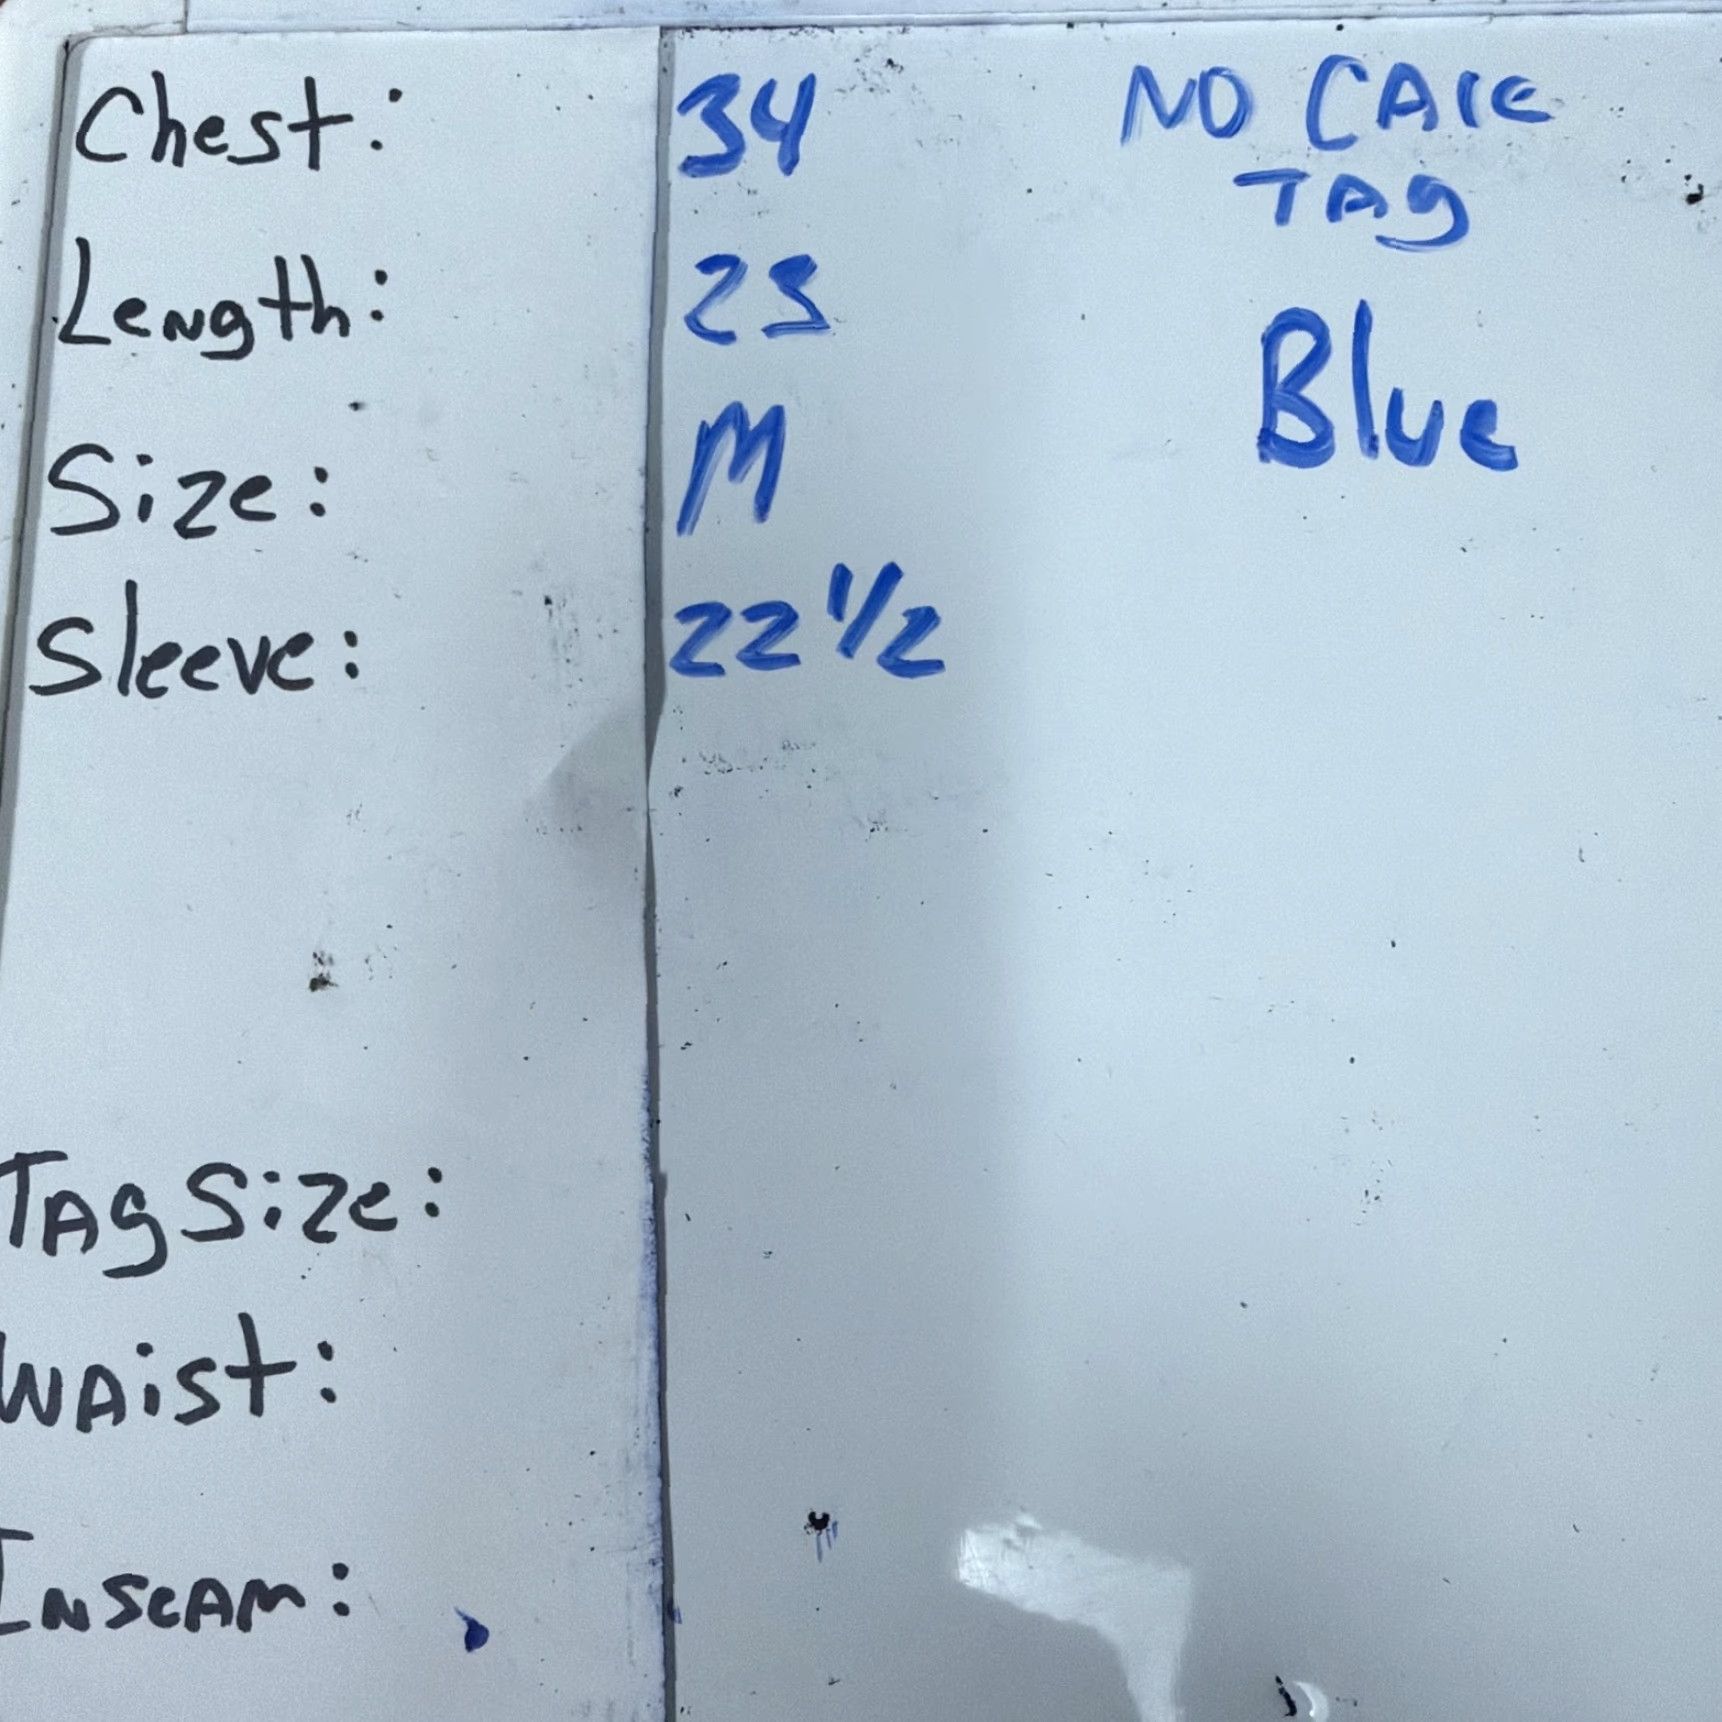 Chest: 34
Length: 23
Size: M
Sleeve: 22 1/2
NO CARE
TAG
Blue
Tag Size:
Waist:
Inseam: